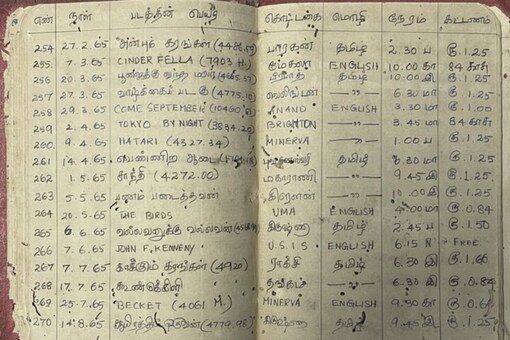 எண் நாள் படத்தின் பெயர் கொட்டகை மொழி நேரம் கட்டணம்
254 27.2.65 அன்புக் கரங்கள் பாரகன் தமிழ் 2.30 ப ரூ.1.25
255. 7.3.65 CINDER FELLA (7903 H.) ENGLISH 10.00 கா 84 காசு
256 20.3.65 பூஜைக்கு வந்த மலர் தமிழ் 10.00 இ ரூ.1.25
257 27.3.65 வாழ்க்கைப் படகு —"— 6.30 மா ரூ.1.25
258 29.3.65 COME SEPTEMBER ANAND ENGLISH 3.30 மா ரூ.1.00
259 2.4.65 TOKYO BY NIGHT BRIGTON —"— 3.45 மா 84 காசு
260. 9.4.65 HATARI (4327.34) MINERVA —"— 1.00 ப ரூ.1.25
261 14.4.65 வெண்ணிற ஆடை தமிழ் 6.30 மா ரூ.1.25
262 1.5.65 சாந்தி (4272.00) மகாராணி —"— 9.45 இ ரூ.1.25
263 5.5.65 பணம் படைத்தவன் கிரௌன் —"— 10.00 இ ரூ.1.25
264 20.5.65 THE BIRDS UMA ENGLISH மா ரூ.0.84
265 6.6.65 வல்லவனுக்கு வல்லவன் கிருஷ்ணா தமிழ் 2.45 ப ரூ.1.50
266 7.6.65 JOHN F. KENNENY U.S.I.S ENGLISH 6.15 N + FREE
267 7.7.65 காக்கும் கரங்கள் (4920) ராக்சி தமிழ் 6.30 இ ரூ.1.60
268 17.7.65 கூண்டுக்கிளி —"— 6.30 இ ரூ.0.84
269 25.7.65 BECKET (4061 M.) MINERVA ENGLISH 9.30 கா
270 14.8.65 ஆயிரத்தில் ஒருவன் கிருஷ்ணா தமிழ் 9.45 இ ரூ.1.25